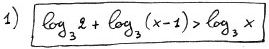 1) log₃2 + log₃(x-1) > log₃x